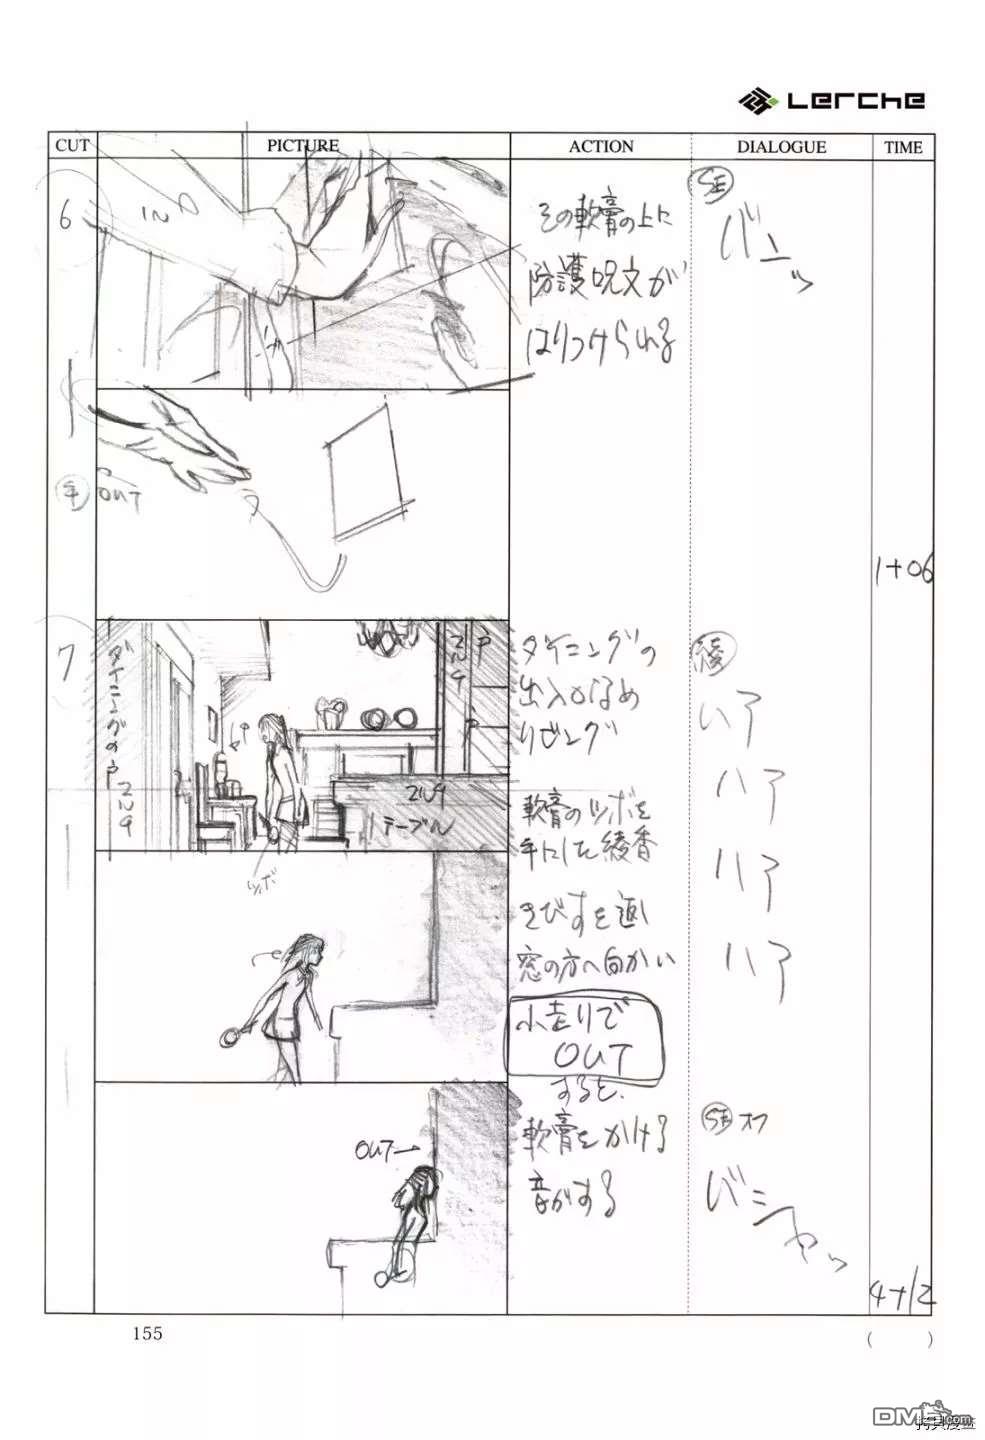 Lerche
CUT
PICTURE
ACTION
DIALOGUE
TIME
6
IN
その軟膏の上に
防護呪文が
はりつけられる
SE
バンッ
手
OUT
1+06
7
ダイニングの戸 BOOK
BOOK
戸
BOOK
テーブル
ツボ
ダイニングの
出入口なめ
リビング
軟膏のツボを
手にした綾香
きびすを返し
窓の方へ向かい
小走りで
OUT
すると、
軟膏をかける
音がする
綾
ハア
ハア
ハア
ハア
OUT→
SE オフ
バシャッ
4+12
155
( )
DM5.com
拷贝漫畫